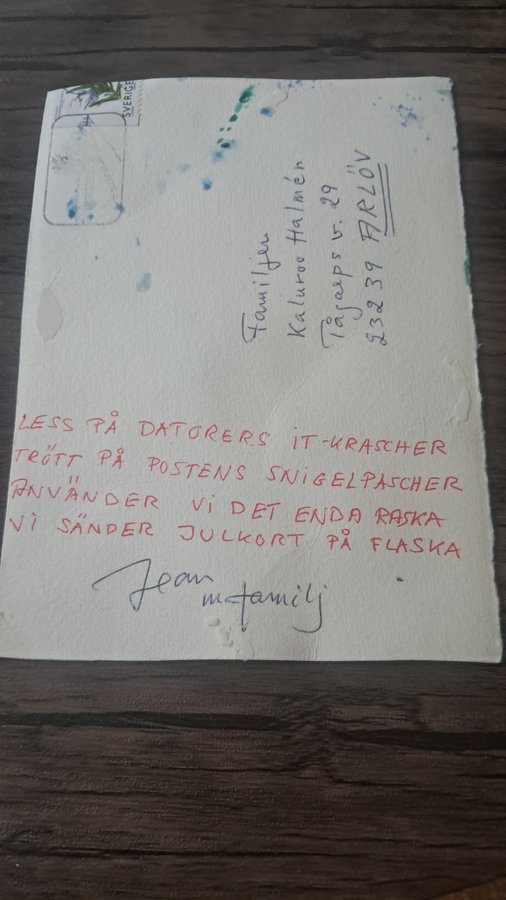 SVERIGE
Familjen
Kaluroo Halmén
Tågarps v. 29
232 39 ARLÖV
LESS PÅ DATORERS IT-KRASCHER
TRÖTT PÅ POSTENS SNIGELPASCHER
ANVÄNDER VI DET ENDA RASKA
VI SÄNDER JULKORT PÅ FLASKA
Jean
m familj